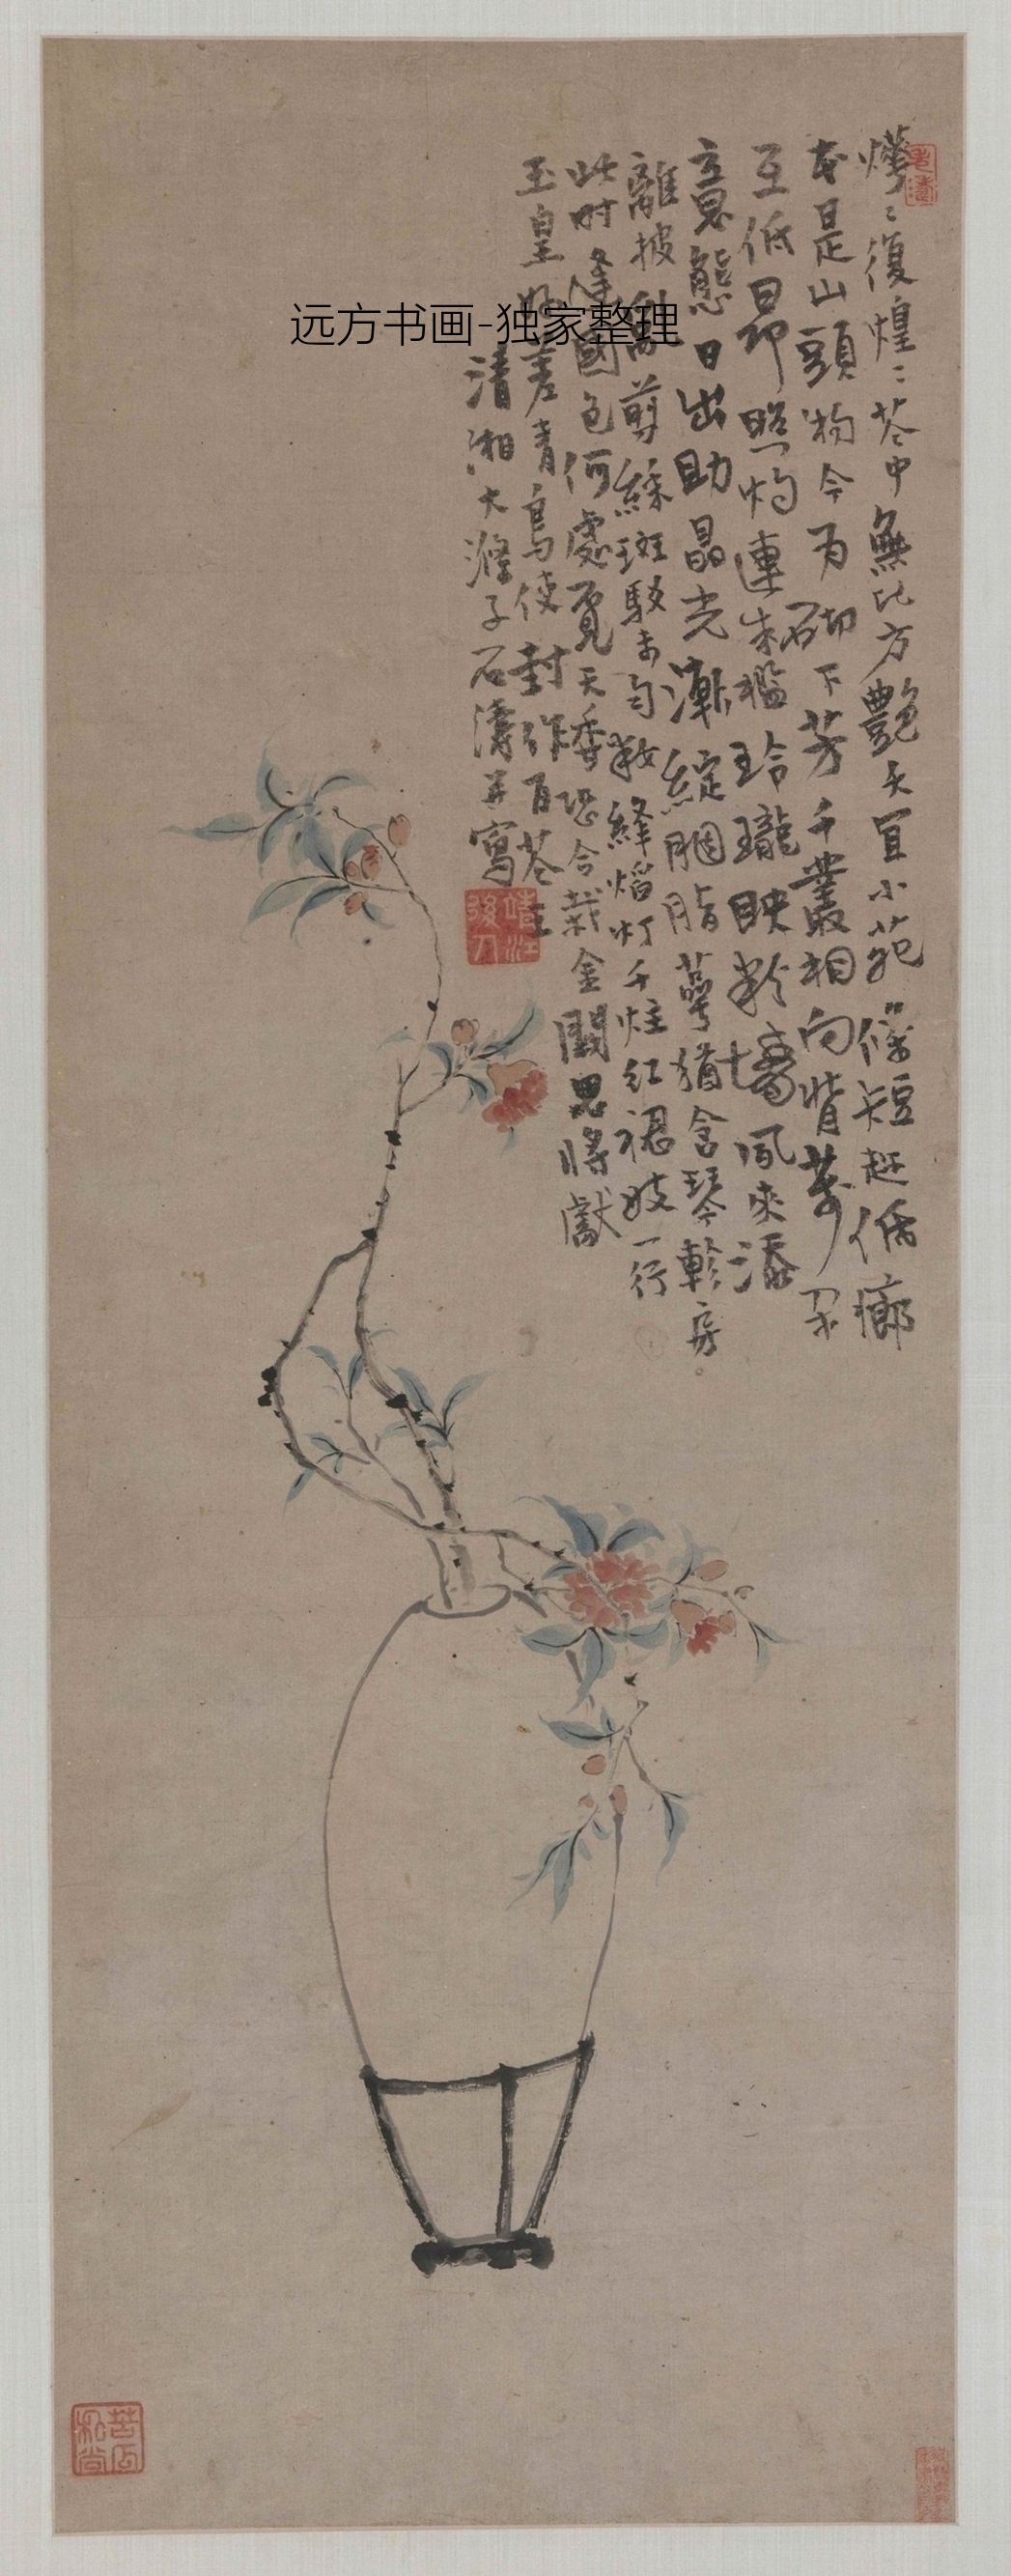 燁〻復煌〻花中無比方艷夭宜小苑條短趁低廊
本是山頭物今為砌下芳千叢相向背萬朵
互低昂照灼連朱檻玲瓏映粉墻風來添
意態日出助晶光漸綻胭脂萼猶含琴軫房
離披亂剪綵斑駁未勻粧絳焰灯千炷紅裙妓一行
此时逢國色何處覓天香恐合栽金闕思將獻
玉皇好差青鳥使封作百花王
清湘大滌子石濤并寫
靖江後人
苦瓜和尚
远方书画-独家整理